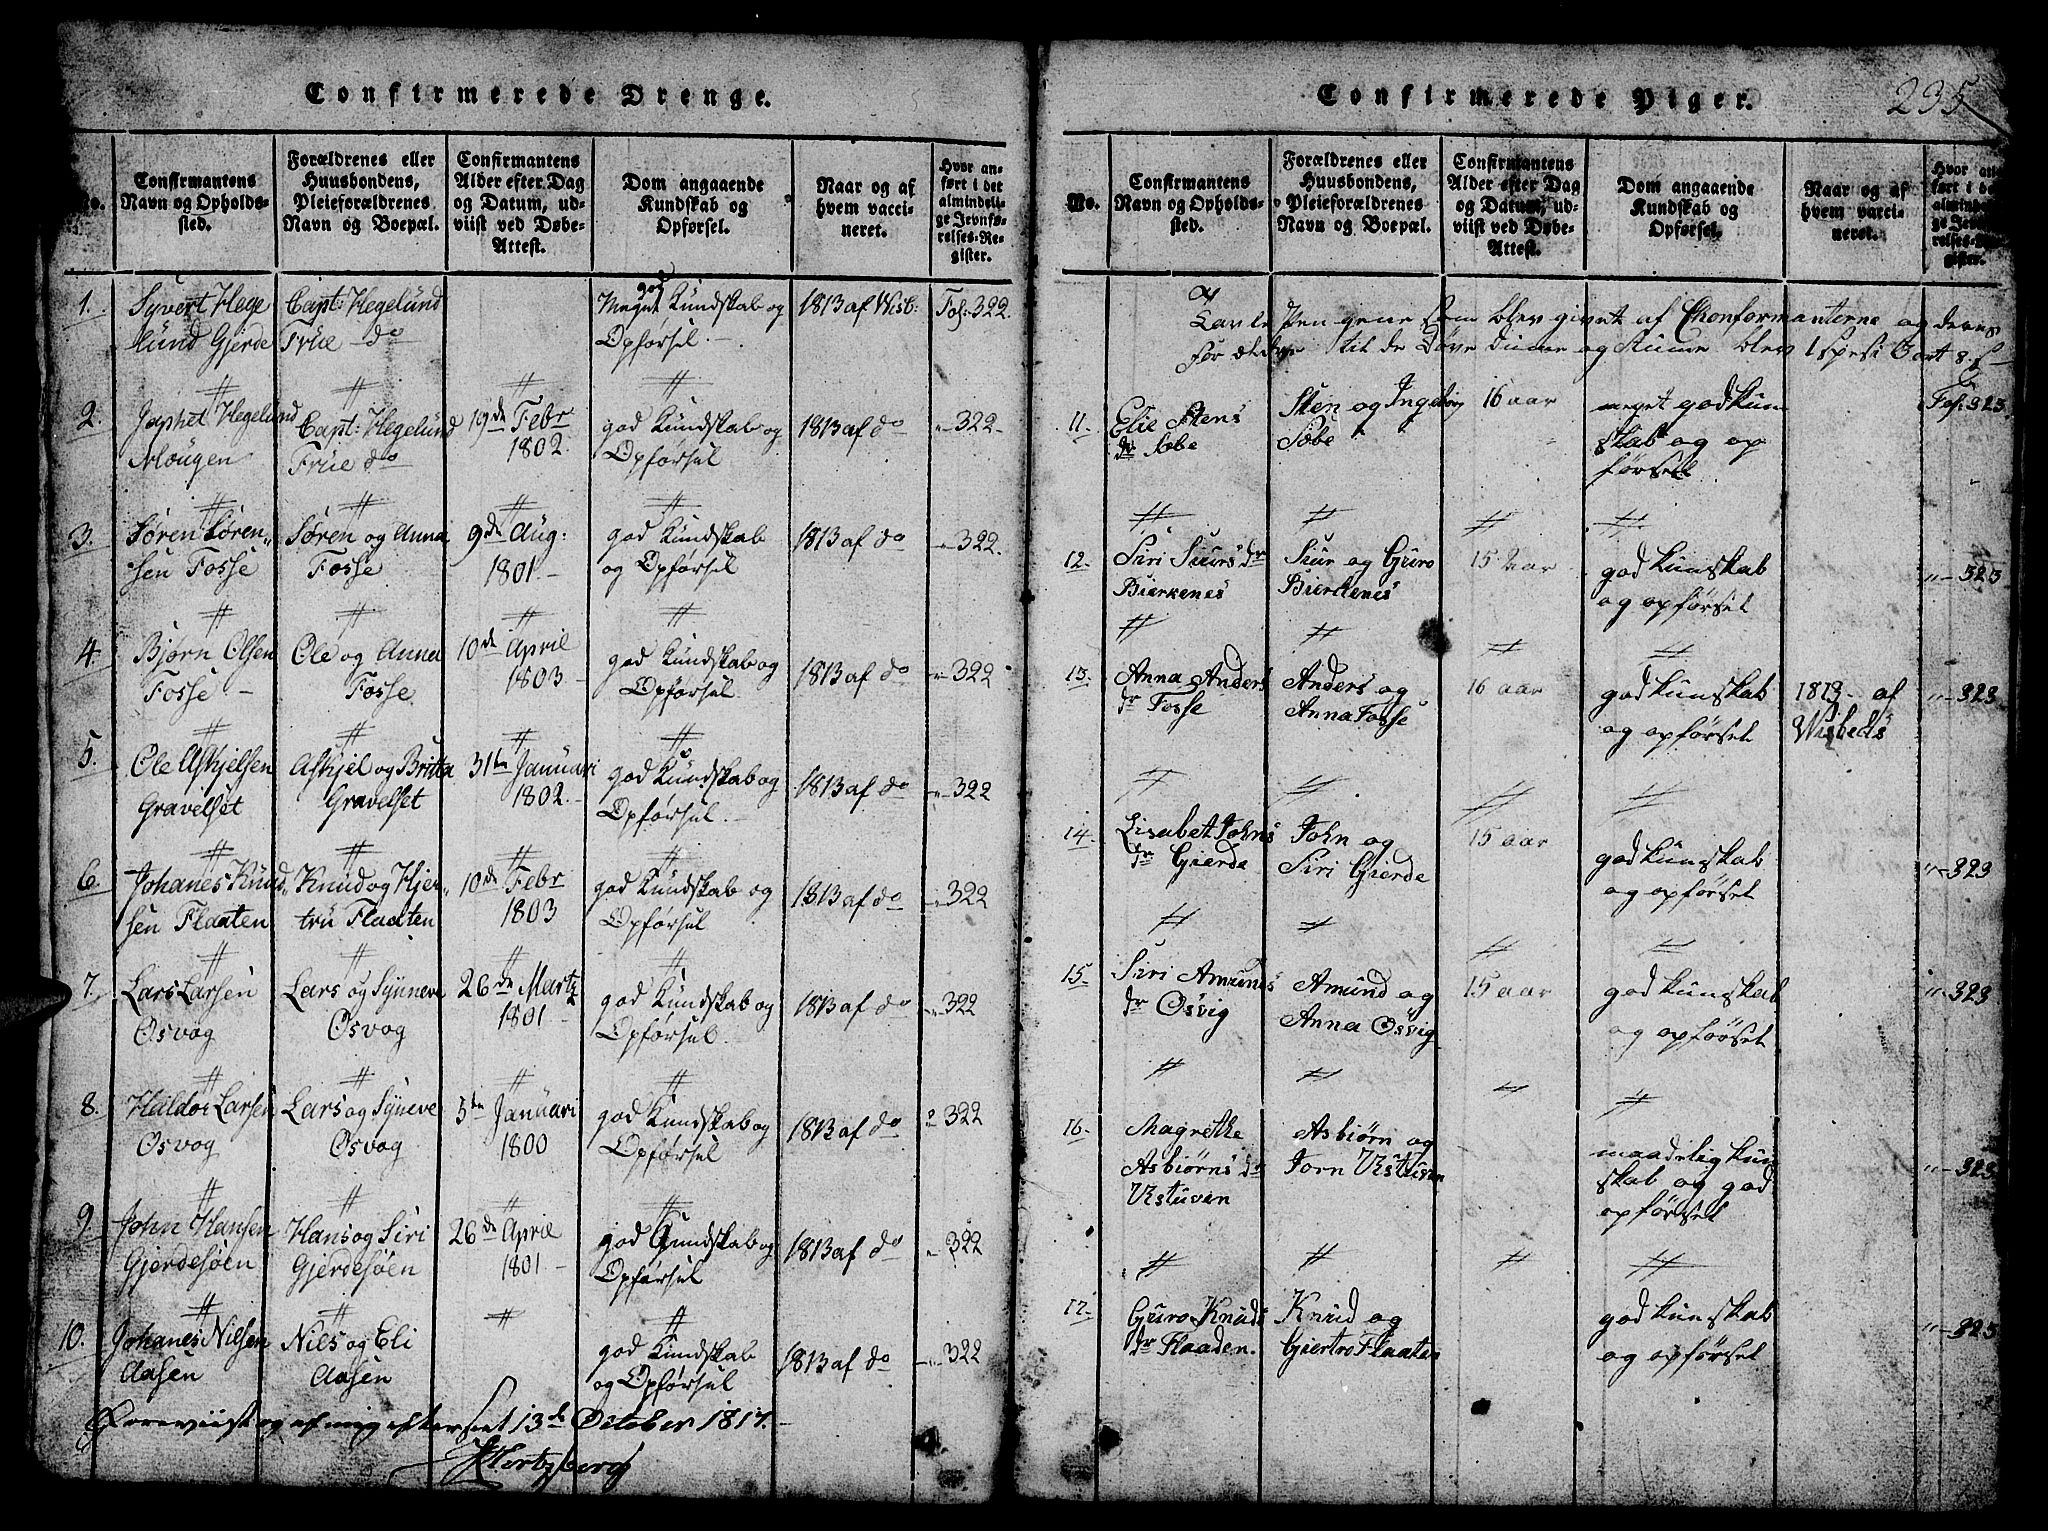 Confirmerede Drenge.
No.
Confirmantens Navn og Opholdssted.
Forældrenes eller Huusbondens, Pleieforældrenes Navn og Boepæl.
Confirmantens Alder efter Dag og Datum, udviist ved Døbe-Attest.
Dom angaaende Kundskab og Opførsel.
Naar og af hvem vaccineret.
Hvor anført i det almindelige Jevnførelses-Register.
1. Syvert Hege Capt: Hegelund Meget god Kundskab og 1813 af Wisb: Fol: 322.
lund Gjerde Frue do Opførsel.
2. Japhet Hegelund Capt: Hegelund 19de Febr god Kundskab og 1813 af do 322
Mougen Frue do 1802. Opførsel
3. Søren Søren Søren og Anna 9de Aug: god Kundskab 1813 af do 322.
sen Fosse Fosse 1801. og Opførsel
4. Bjørn Olsen Ole og Anna 10de April god Kundskab og 1813 af do 322
Fosse Fosse 1803 Opførsel
5. Ole Askjelsen Askjel og Britta 31te Januari god Kundskab og 1813 af do 322
Gravelset Gravelset 1802. Opførsel.
6. Johanes Knud Knud og Hjer 10de Febr god Kundskab og 1813 af do 322
sen Flaaten tru Flaaten 1803 Opførsel
7. Lars Larsen Lars og Synneve 26de Martz god Kundskab og 1813 af do 322
Osvog Osvog 1801 Opførsel.
8. Haldor Larsen Lars og Syneve 5te Januari god Kundskab og 1813 af do 322
Osvog Osvog 1800 Opførsel
9. John Hansen Hans og Siri 26de April god Kundskab og 1813 af do 322
Gjerdesøen Gjerdesøen 1801 Opførsel
10. Johanes Nilsen Niels og Eli god Kundskab 1813 af do 322
Aasen Aasen og Opførsel
Foreviist og af mig efterseet 13de October 1817.
Hertzberg
Confirmerede Piger.
235
No.
Confirmantens Navn og Opholdssted.
Forældrenes eller Huusbondens, Pleieforældrenes Navn og Boepæl.
Confirmantens Alder efter Dag og Datum, udviist ved Døbe-Attest.
Dom angaaende Kundskab og Opførsel.
Naar og af hvem vaccineret.
Hvor anført i det almindelige Jevnførelses-Register.
Pengene som blev givet af Chonformanterne og deres
Forældre til de Døve Dume og Stume blev 1 spesi 3 ort 8 s
11. Elie Stens Sten og Ingebor 16 aar meget god kun Fol: 323.
dr Sæbe Sæbe skab og op
førsel
12. Siri Siurs dr Siur og Guro 15 aar god kunskab 323
Bierkenes Bierkenes og opførsel
13. Anna Anders Anders og 16 aar god kunskab 1813 af 323
dr Fosse Anna Fosse og opførsel Wisbeds
14. Lisabet Johns John og 15 aar god kunskab 323
dr Gierde Siri Gierde og opførsel
15. Siri Amuns Amund og 15 aar god kunskab 323
dr Osvig Anna Osvig og opførsel
16. Magrethe Asbiørn og maadelig kun 323
Asbiørns dr Torn Ustuven skab og god
Ustuven opførsel
17. Guro Knuds Knud og god kunskab 323
dr Flaaden. Giertro Flaaten og opførsel